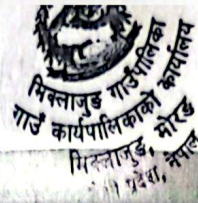 मिक्लाजुङ गाउँपालिका
गाउँ कार्यपालिकाको कार्यालय
मिक्लाजुङ, मोरङ
प्रदेश, नेपाल